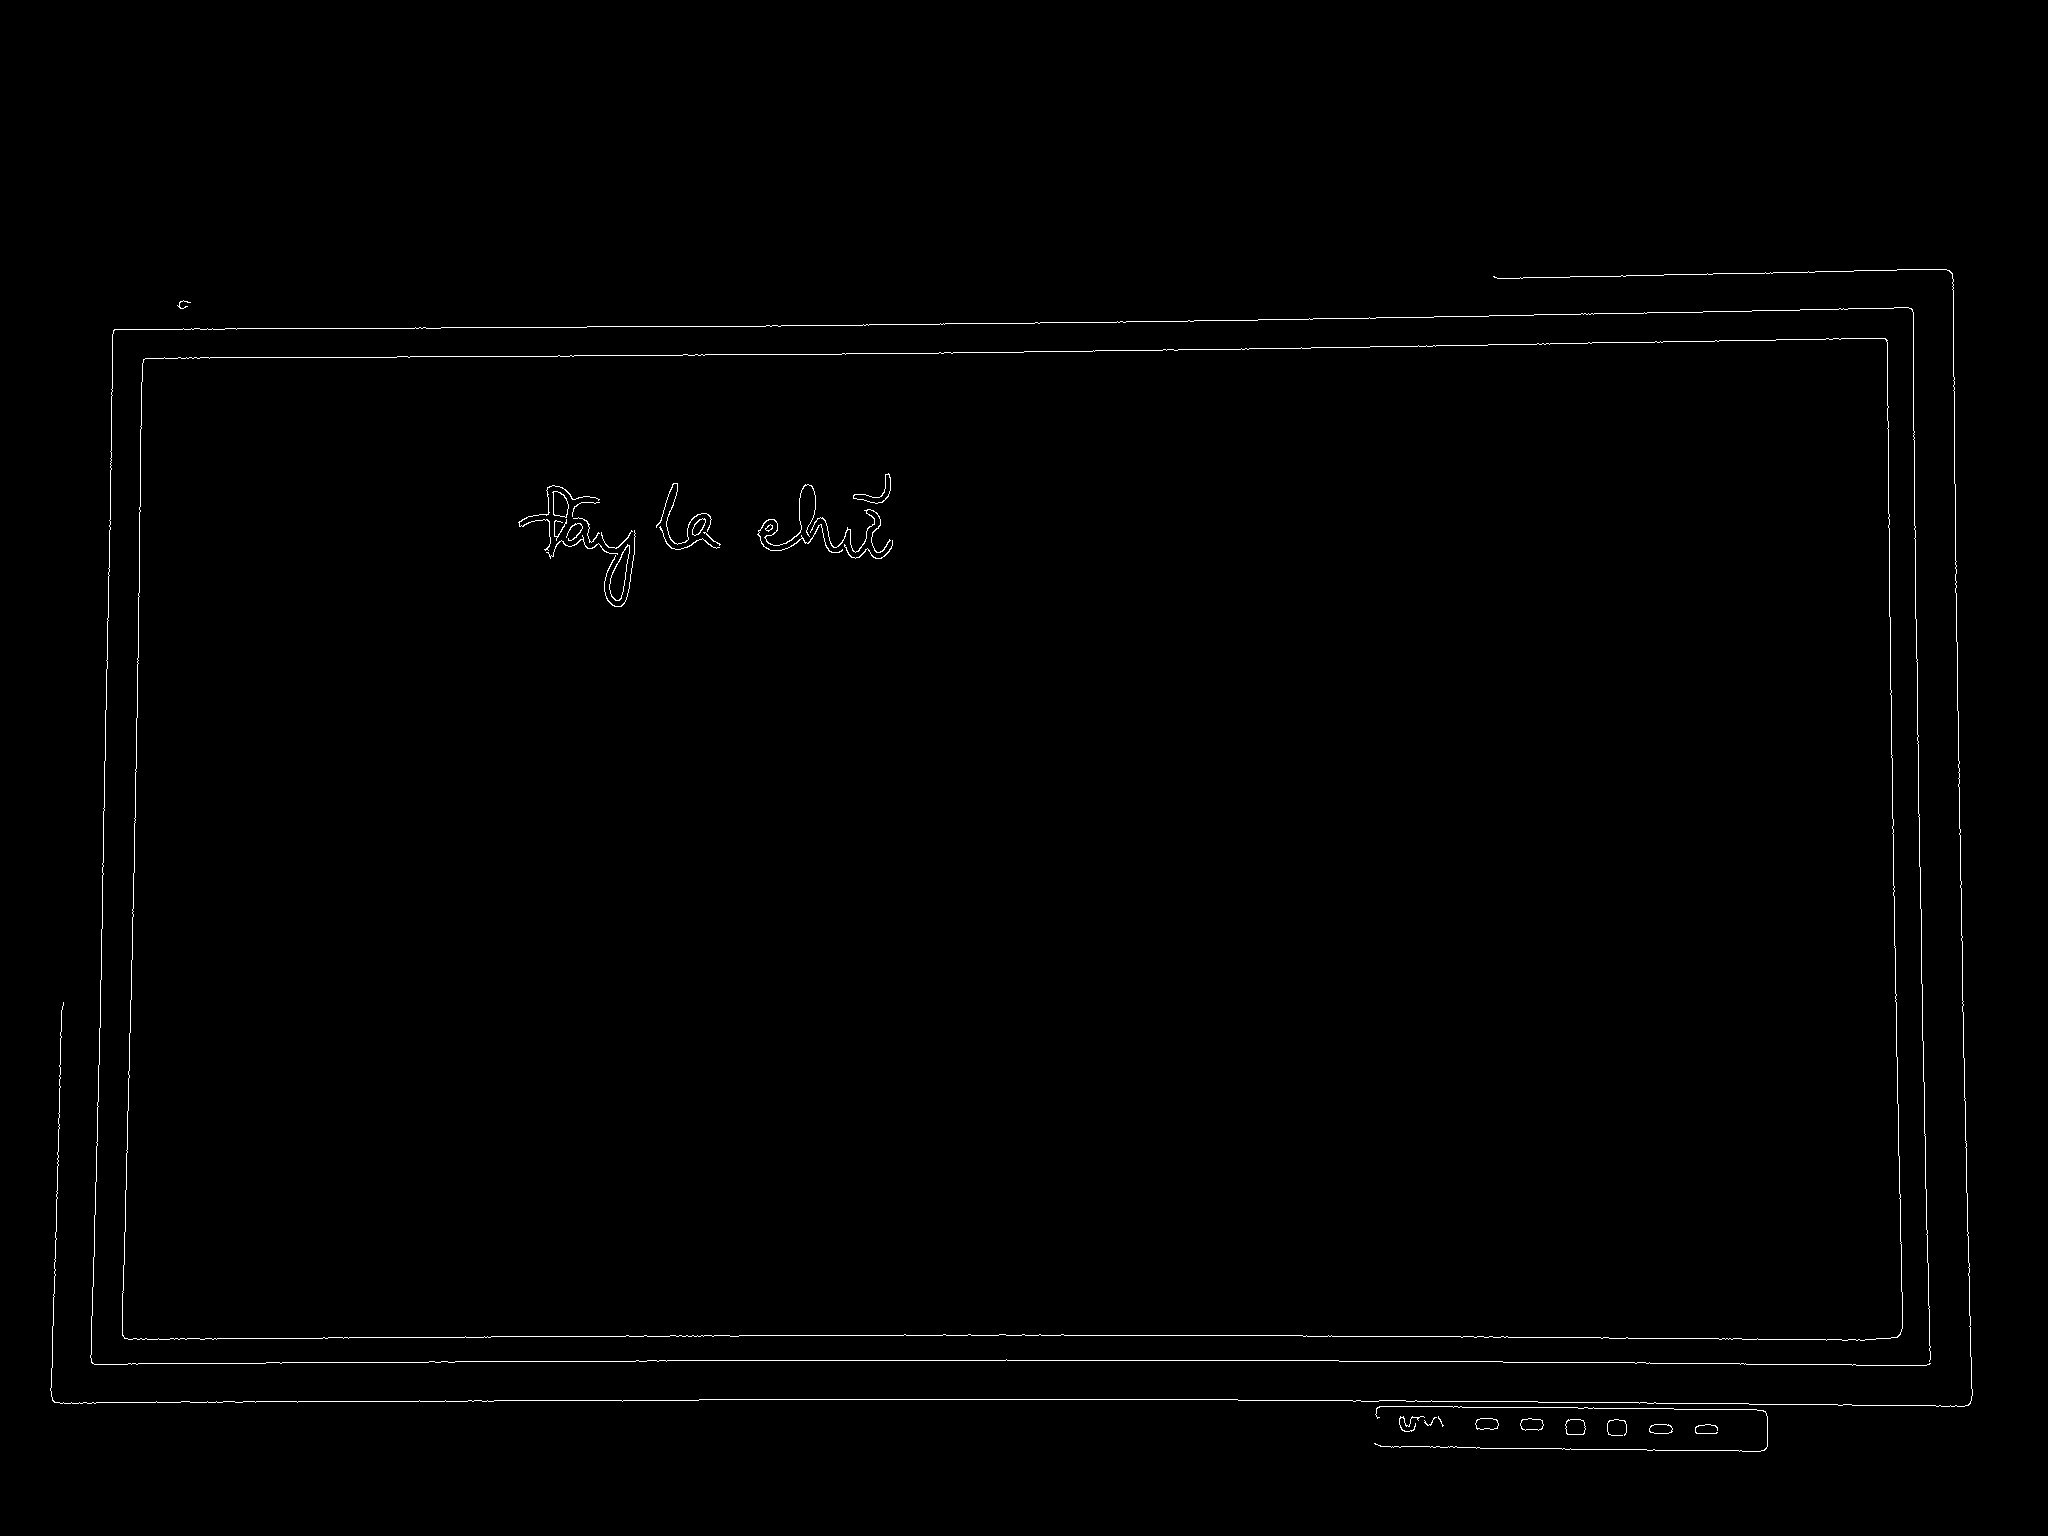 Đây la chữ